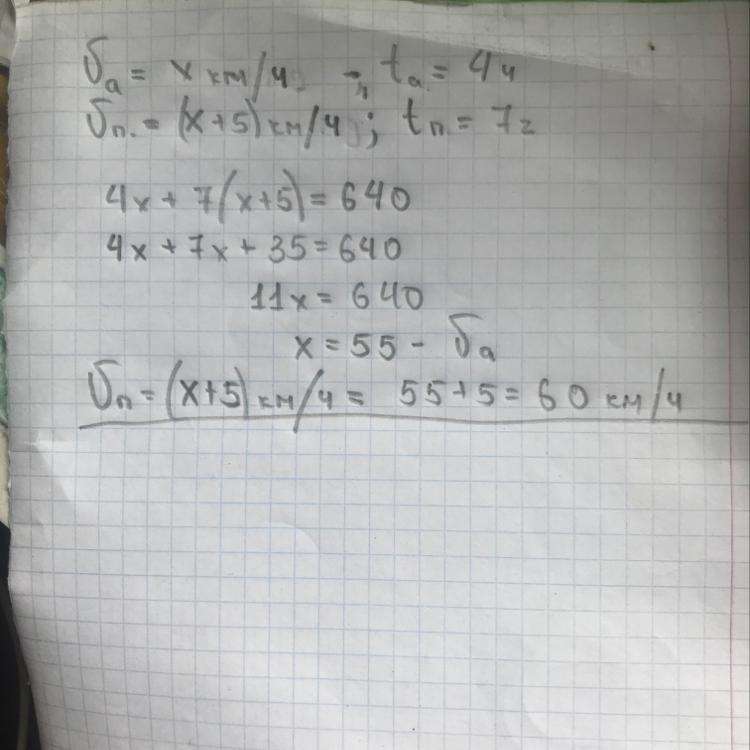 Vₐ = x км/ч ; tₐ = 4ч
Vп. = (x+5) км/ч ; tп = 7г
4x + 7(x+5) = 640
4x + 7x + 35 = 640
11x = 640
x = 55 - Vₐ
Vп = (x+5) км/ч = 55+5 = 60 км/ч